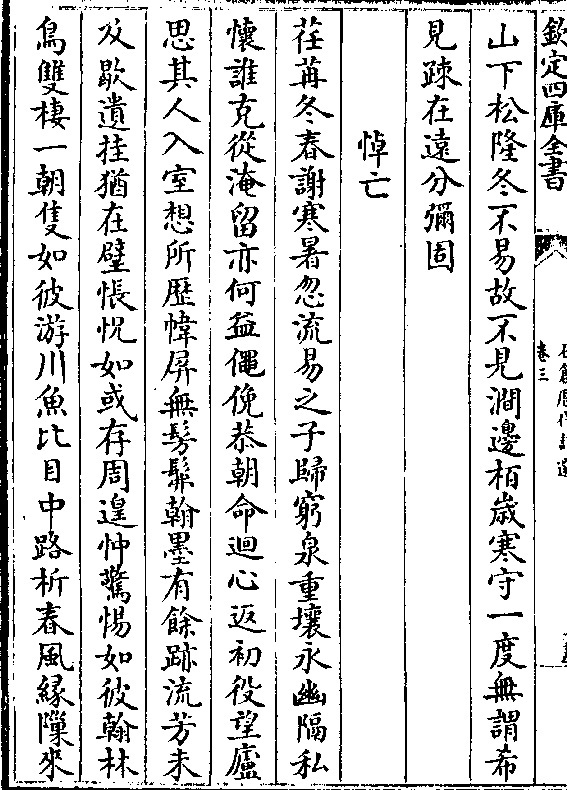 欽定四庫全書
石倉歷代詩選
卷三
山下松隆冬不易故不見澗邊栢歲寒守一度無謂希
見疎在遠分彌固
悼亡
荏苒冬春謝寒暑忽流易之子歸窮泉重壤永幽隔私
懷誰克從淹留亦何益僶俛恭朝命迴心返初役望廬
思其人入室想所歷幃屏無髣髴翰墨有餘跡流芳未
及歇遺挂猶在壁悵怳如或存周遑忡驚惕如彼翰林
鳥雙棲一朝隻如彼游川魚比目中路析春風緣隟來